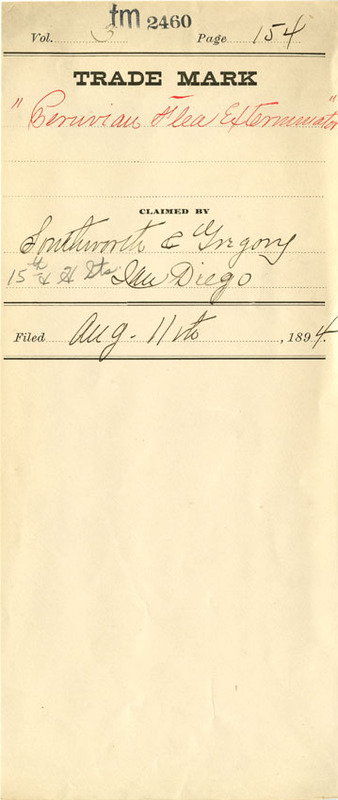 tm 2460
Vol. 3 Page 154
TRADE MARK
"Peruvian Flea Exterminator"
CLAIMED BY
Southworth & Gregory
15th & H Sts. San Diego
Filed Aug. 11th, 1894.